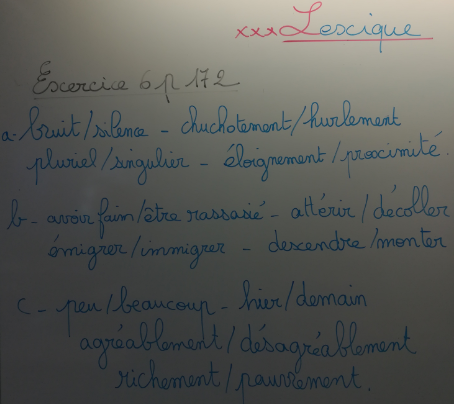 xxx Lexique
Exercice 6 p 172
a. bruit/silence - chuchotement/hurlement
pluriel/singulier - éloignement/proximité.
b - avoir faim/être rassasié - attérir/décoller
émigrer/immigrer - descendre/monter
c - peu/beaucoup - hier/demain
agréablement/désagréablement
richement/pauvrement.